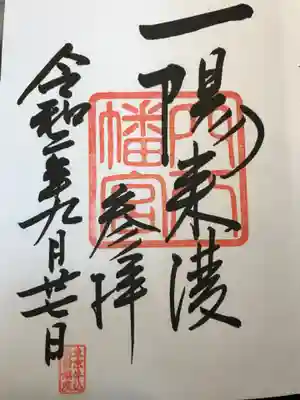 一陽来復
穴八
幡宮
参拝
令和二年九月廿七日